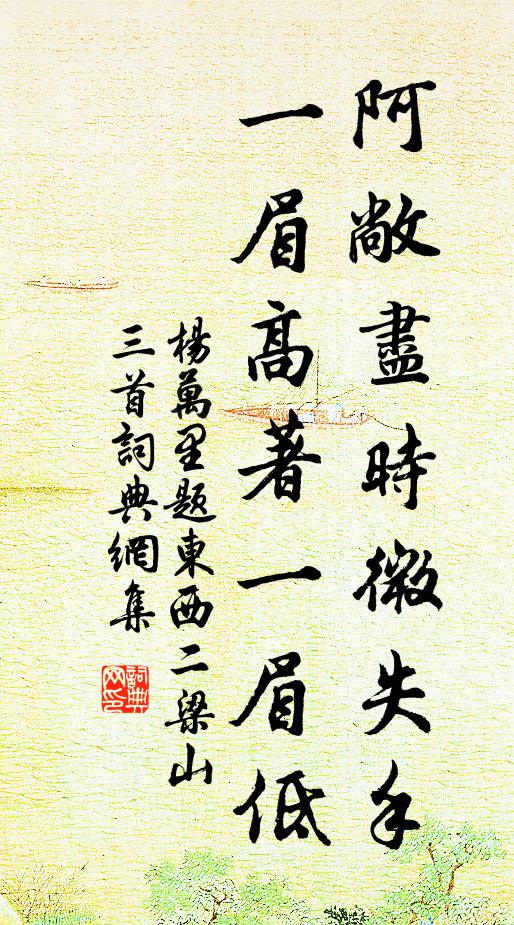 阿敞盡時微失手
一眉高著一眉低
楊萬里題東西二梁山
三首詞典網集
詞典网印